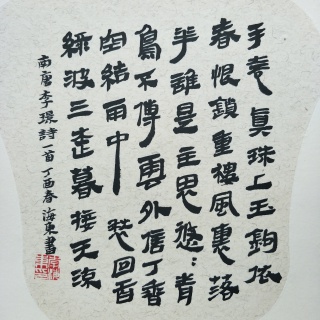 手卷真珠上玉鉤依
春恨鎖重樓風裏落
華誰是主思悠々青
鳥不傳雲外信丁香
空結雨中愁回首
綠波三楚暮接天流
南唐李璟詩一首丁酉春海東書